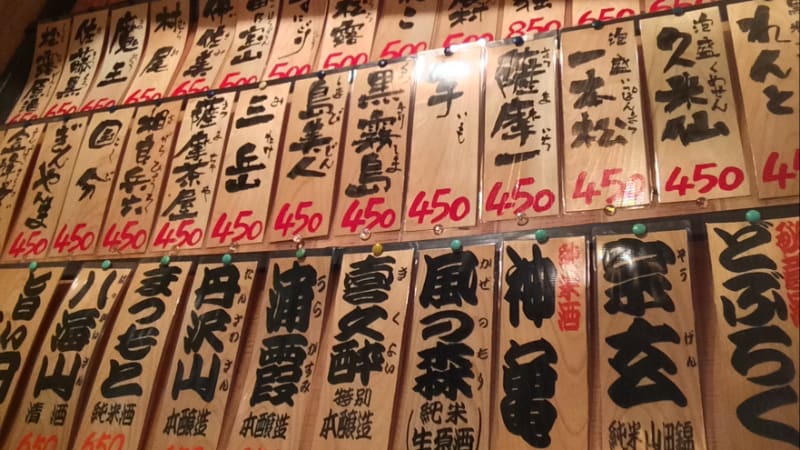 佐藤
魔王
村尾
伊佐美
富山
650
650
650
650
650
500
500
500
500
500
850
650
650
ぎんやんま
国分
相良兵六
薩摩茶屋
三岳
島美人
黒霧島
芋
薩摩一
泡盛 一本松
泡盛 久米仙
れんと
450
450
450
450
450
450
450
450
850
650
450
八海山 清酒
まつもと 純米酒
丹沢山 本醸造
浦霞 本醸造
喜久酔 特別 本醸造
風の森 純米 (生原酒)
神亀 純米酒
宗玄 純米 山田錦
どぶろく
650
650